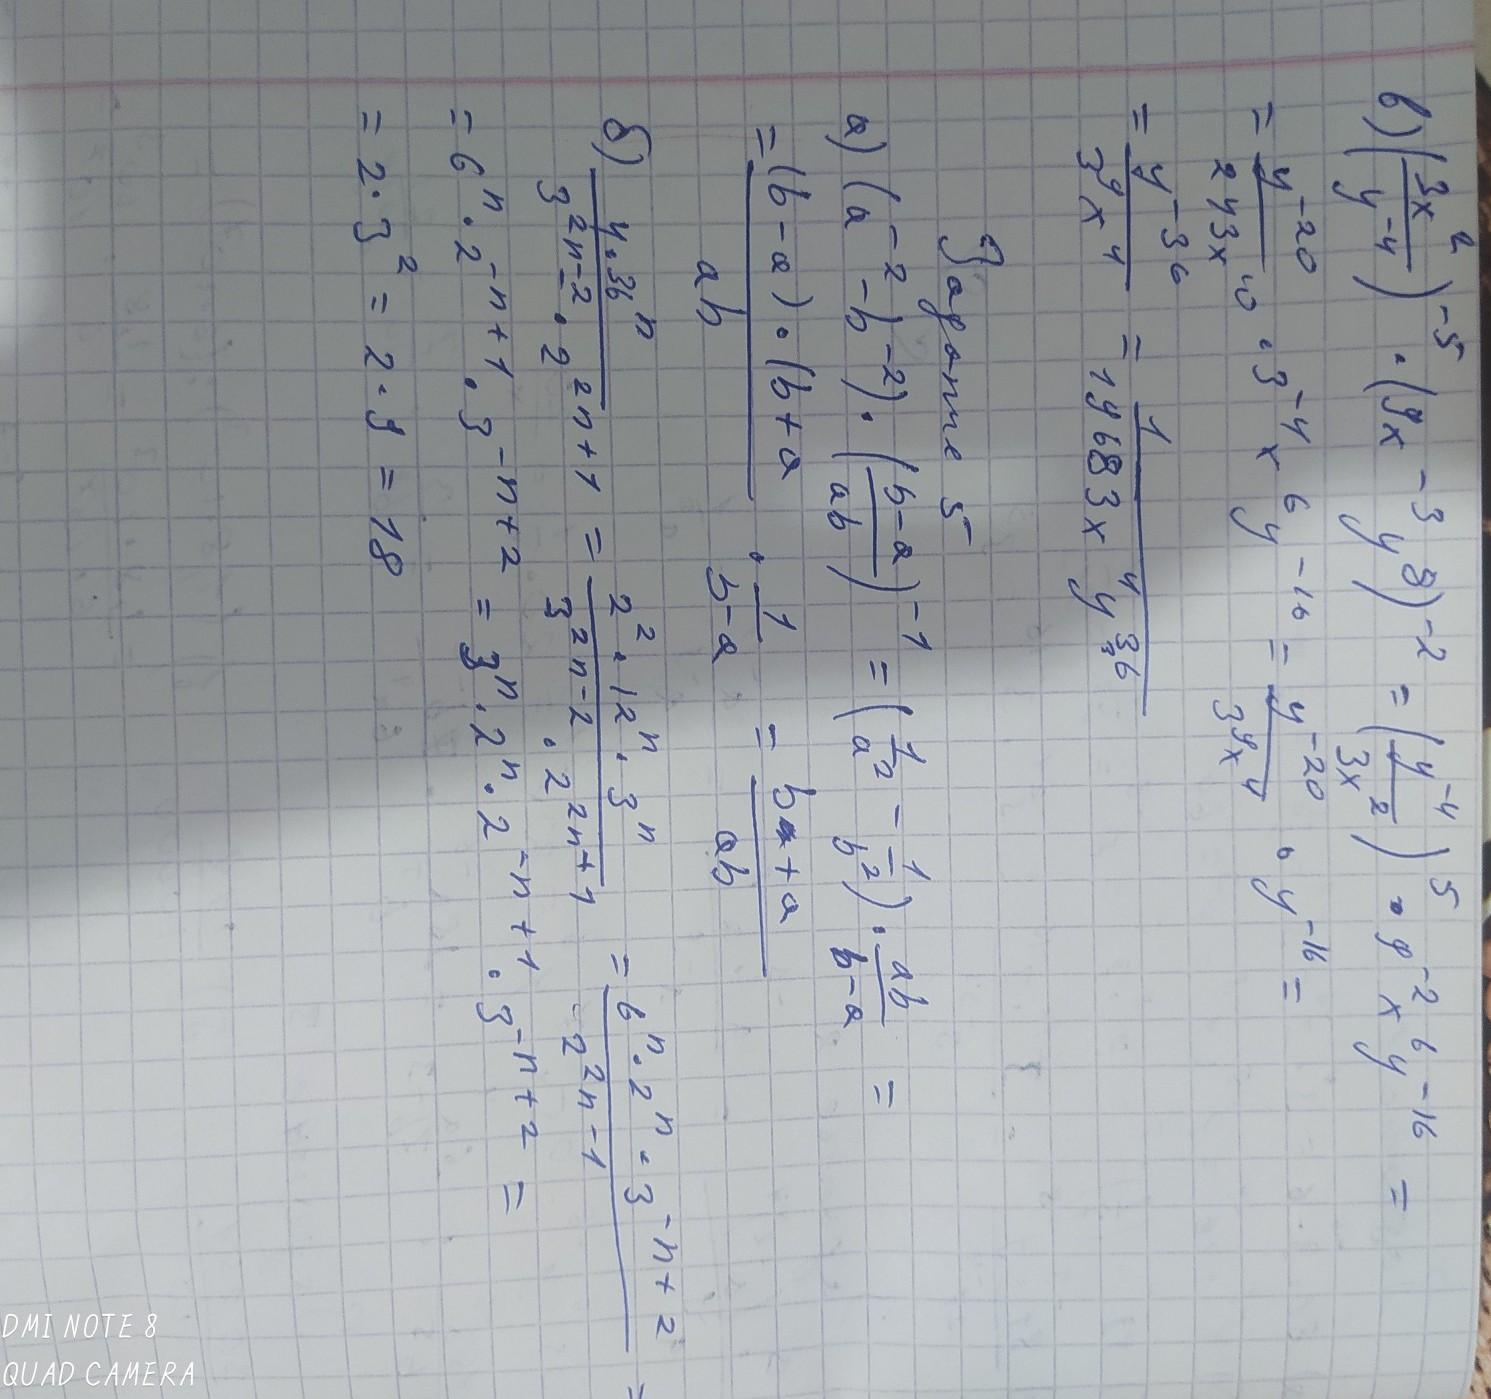 в) (3x²/y⁻⁴)⁻⁵ · (9x⁻³y⁸)⁻² = (y⁻⁴/3x²)⁵ · 9⁻²x⁶y⁻¹⁶ =
= y⁻²⁰/243x¹⁰ · 3⁻⁴x⁶y⁻¹⁶ = y⁻²⁰/3⁹x⁴ · y⁻¹⁶ =
= y⁻³⁶/3⁹x⁴ = 1/19683x⁴y³⁶
Задание 5
а) (a⁻² - b⁻²) · (b-a/ab)⁻¹ = (1/a² - 1/b²) · ab/b-a =
= (b-a)·(b+a)/ab · 1/b-a = b+a/ab
б) 4·36ⁿ/3²ⁿ⁻²·2²ⁿ⁺¹ = 2²·12ⁿ·3ⁿ/3²ⁿ⁻²·2²ⁿ⁺¹ = 6ⁿ·2ⁿ·3⁻ⁿ⁺²/2²ⁿ⁻¹ =
= 6ⁿ·2⁻ⁿ⁺¹·3⁻ⁿ⁺² = 3ⁿ·2ⁿ·2⁻ⁿ⁺¹·3⁻ⁿ⁺² =
= 2·3² = 2·9 = 18
DMI NOTE 8
QUAD CAMERA